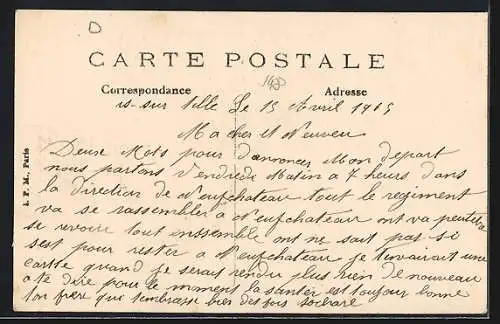 CARTE POSTALE
1480
Correspondance
Adresse
is-sur tille Le 15 Avril 1915
Ma cher et Neuveu
Deuse Mots pour d'anoncer Mon depart
nous partons Vendredi Matin a 7 heurs dans
la direction de Neufchateau tout le regiment
va se rassembler a Neufchateau ont va peutetre
se revoire tout enssemble ont ne sait pas si
sest pour rester a Neufchateau je t'invairait une
cartte quand je serais rendu plus rien de nouveau
a te dire pour le moment la santér est toujour bonne
ton frere que t'embrasse bien des fois
I. P. M., Paris